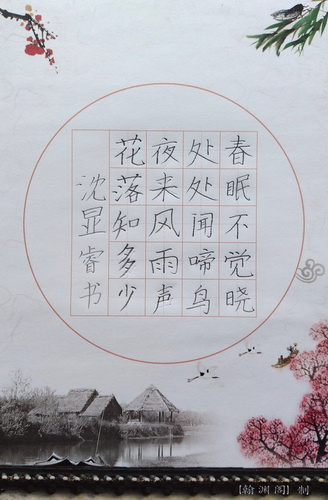 春眠不觉晓
处处闻啼鸟
夜来风雨声
花落知多少
沈显睿书
【翰渊阁】制